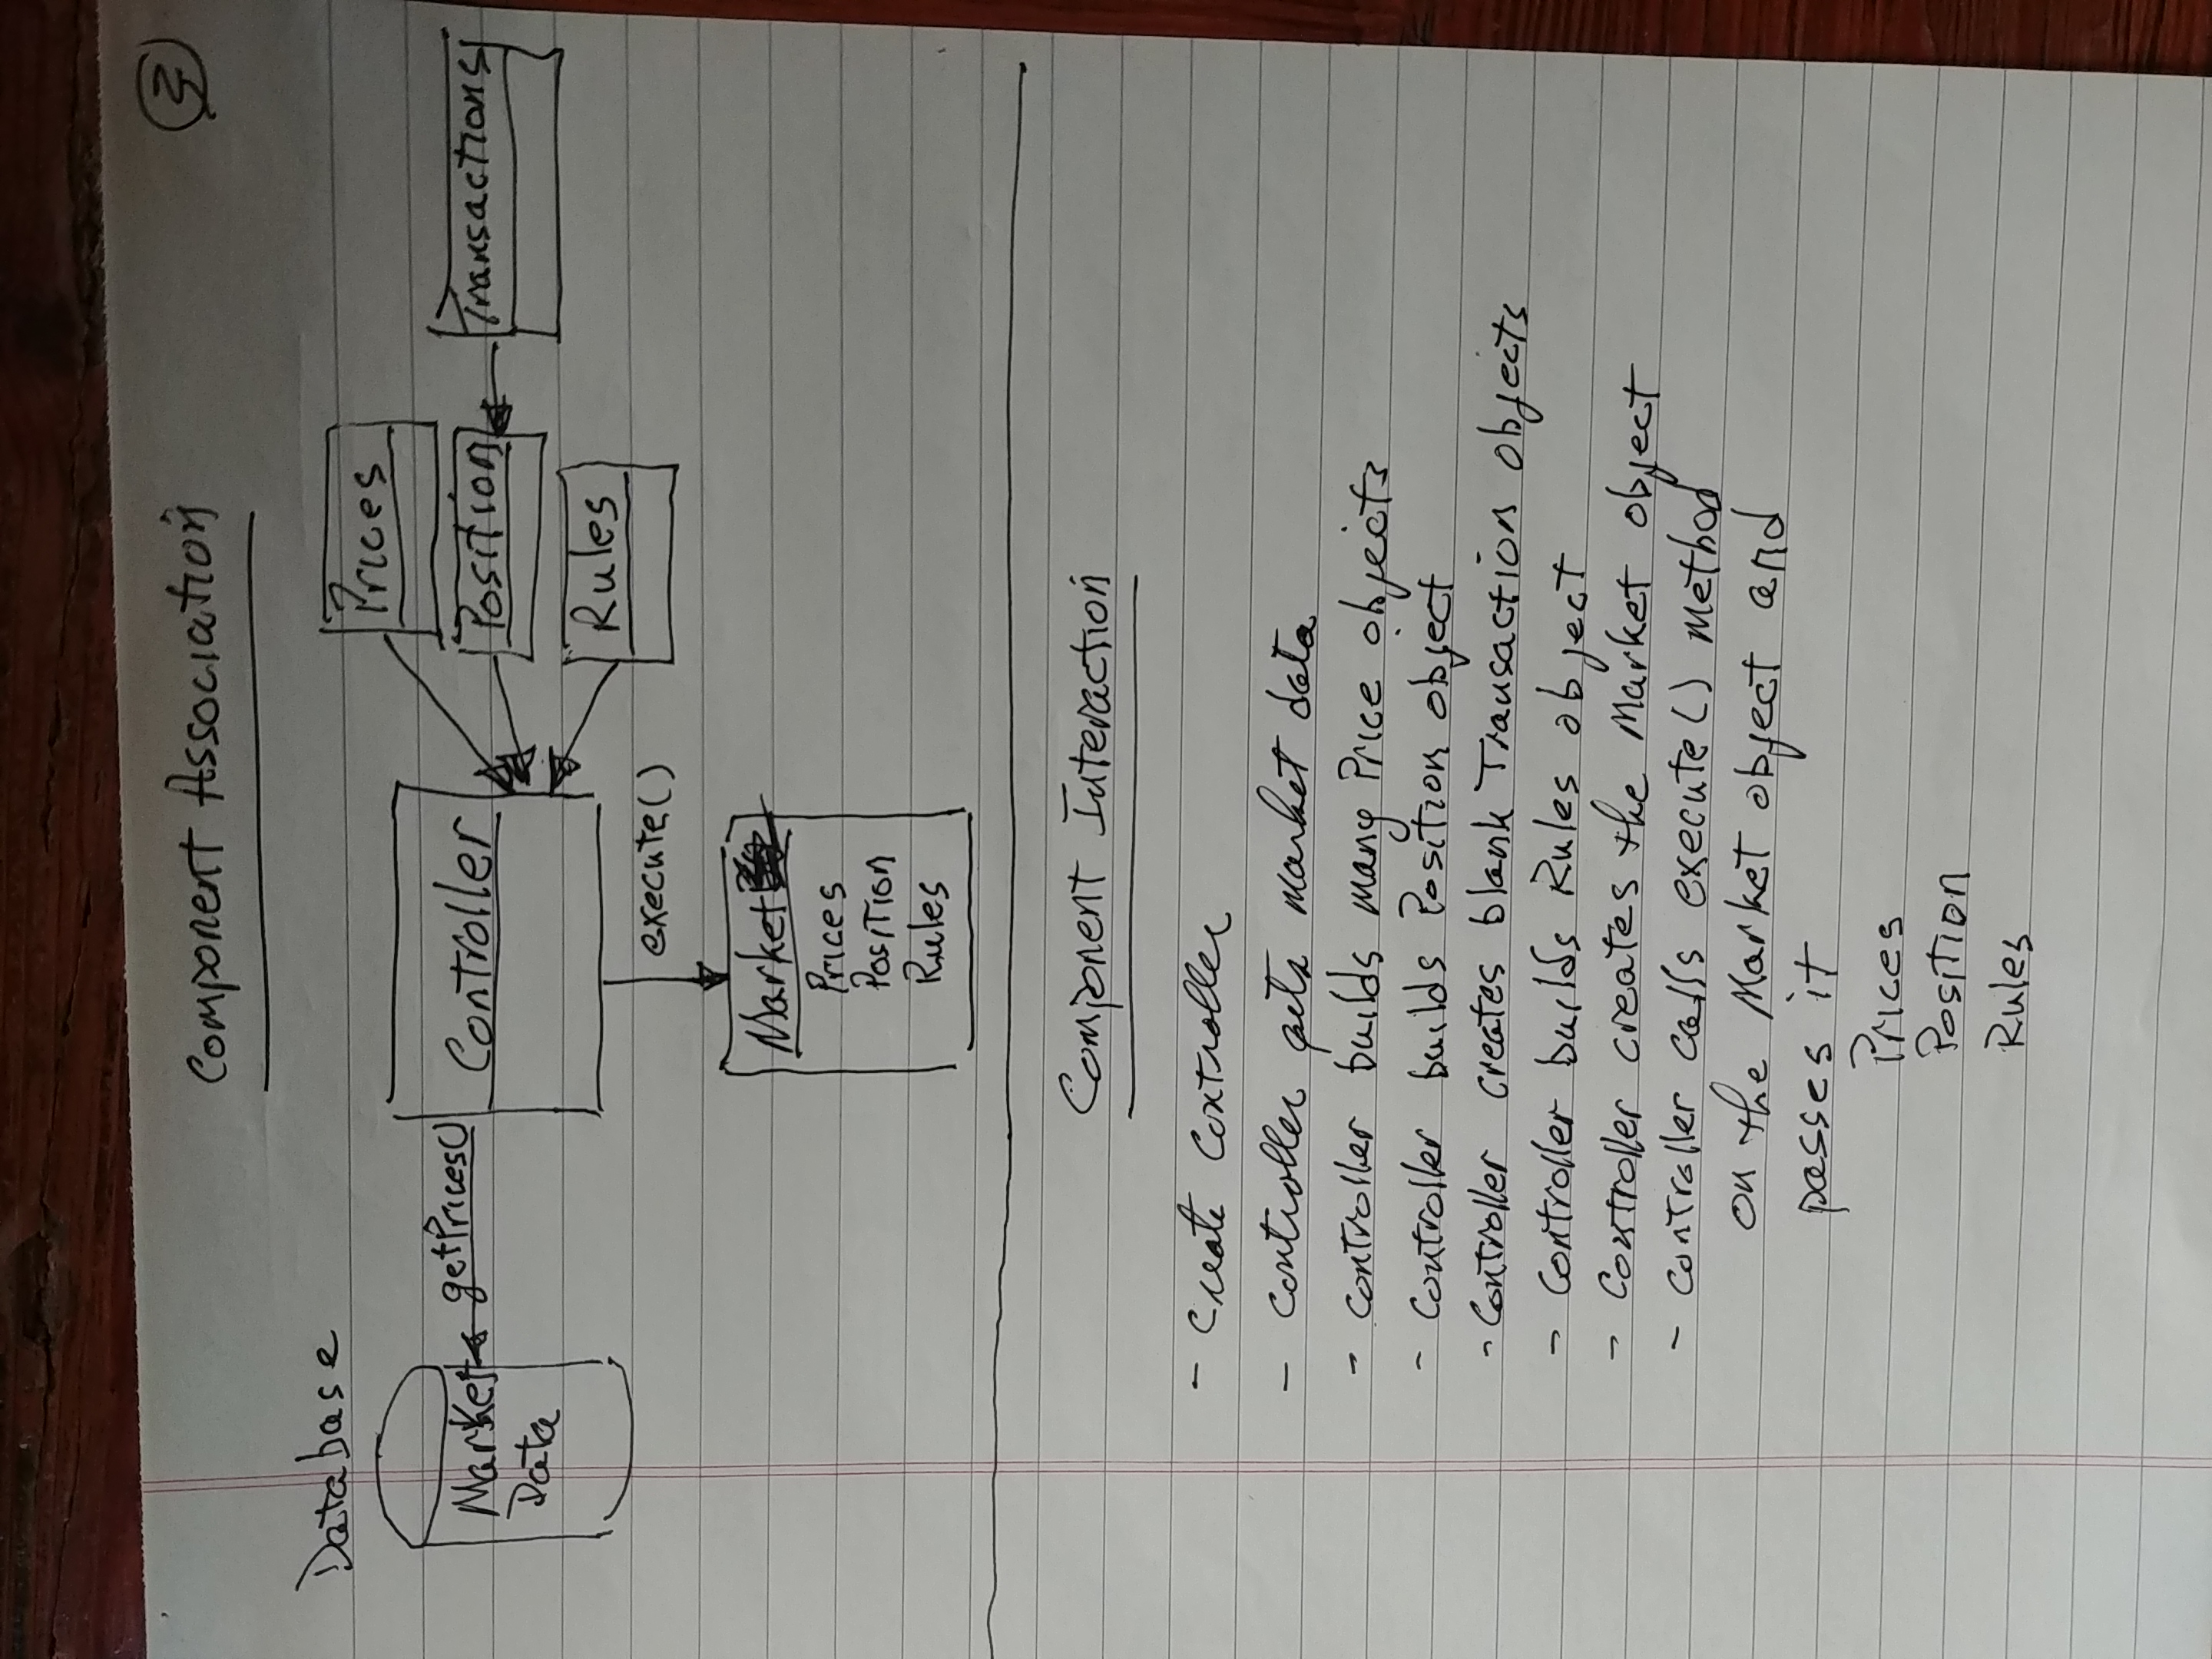 Component Association
Database
Prices
getPrices()
Controller
Position
Transactions
Market
Data
Rules
execute()
Market
Prices
Position
Rules
Component Interaction
- Create Controller
- Controller gets market data
- Controller builds many Price objects
- Controller builds Position object
- Controller creates blank Transaction objects
- Controller builds Rules object
- Controller creates the Market object
- Controller calls execute() method
on the Market object and
passes it
Prices
Position
Rules